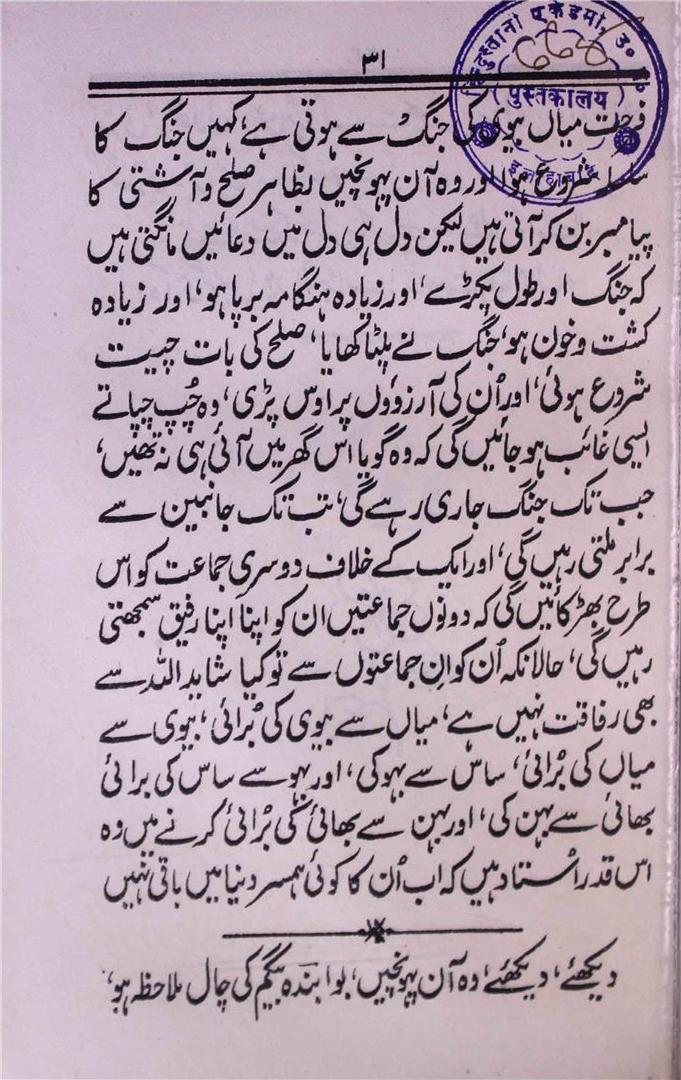 ۳۱
हिन्दुस्तानी एकेडेमी, उ०
668
पुस्तकालय
इलाहाबाद
فرحت میاں بیوی کی جنگ سے ہوتی ہے، کہیں جنگ کا
سلسلہ شروع ہوا اور وہ آن پہونچیں بظاہر صلح و آشتی کا
پیامبر بن کر آتی ہیں لیکن دل ہی دل میں دعائیں مانگتی ہیں
کہ جنگ اور طول پکڑے، اور زیادہ ہنگامہ برپا ہو، اور زیادہ
کشت و خون ہو، جنگ نے پلٹا کھایا، صلح کی بات چیت
شروع ہوئی، اور اُن کی آرزوؤں پر اوس پڑی، وہ چُپ چپاتے
ایسی غائب ہو جائیں گی کہ وہ گویا اس گھر میں آئی ہی نہ تھیں،
جب تک جنگ جاری رہے گی، تب تک جانبین سے
برابر ملتی رہیں گی، اور ایک کے خلاف دوسری جماعت کو اس
طرح بھڑکائیں گی کہ دونوں جماعتیں ان کو اپنا اپنا رفیق سمجھتی
رہیں گی، حالانکہ اُن کو اِن جماعتوں سے تو کیا شاید اللہ سے
بھی رفاقت نہیں ہے، میاں سے بیوی کی بُرائی، بیوی سے
میاں کی بُرائی، ساس سے بہو کی، اور بہو سے ساس کی برائی
بھائی سے بہن کی، اور بہن سے بھائی کی بُرائی کرنے میں وہ
اس قدر اُستاد ہیں کہ اب اُن کا کوئی ہمسر دنیا میں باقی نہیں
دیکھئے، دیکھئے، وہ آن پہونچیں، بوا بندہ بیگم کی چال ملاحظہ ہو،